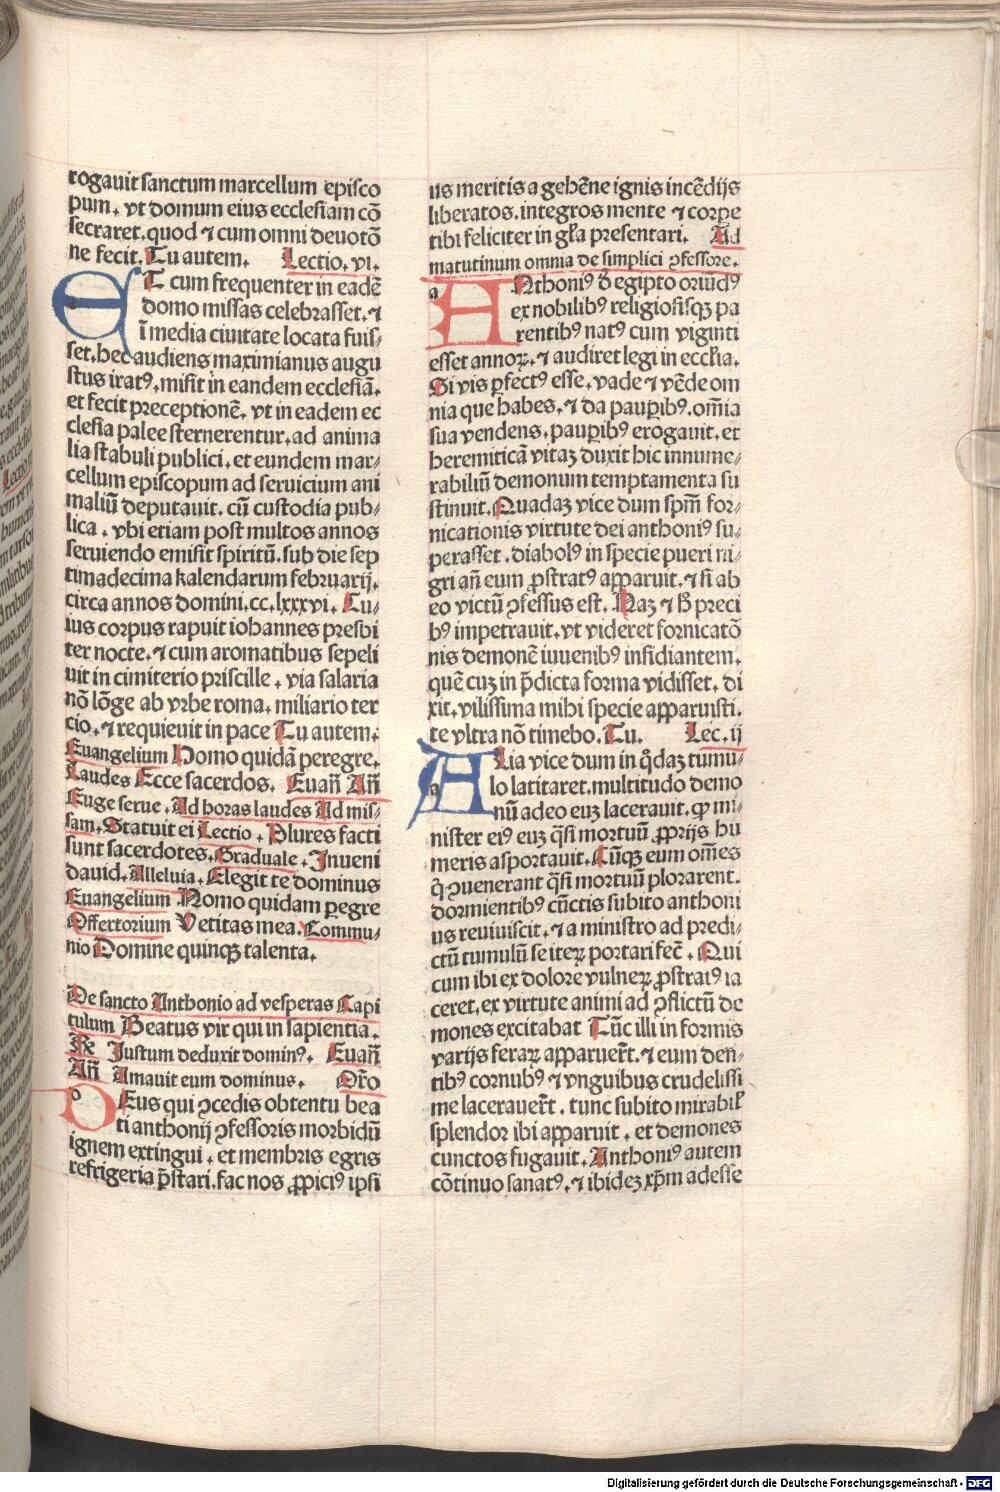 rogauit sanctum marcellum episco
pum. vt domum eius ecclesiam cō
secraret. quod ⁊ cum omni deuotō
ne fecit. Tu autem. Lectio. vi.
ET cum frequenter in eadē
domo missas celebrasset. ⁊
ī media ciuitate locata fuis⸗
set. hec audiens maximianus augu
stus iratꝰ. misit in eandem ecclesiā.
et fecit preceptionē. vt in eadem ec
clesia palee sternerentur. ad anima
lia stabuli publici. et eundem mar⸗
cellum episcopum ad seruicium ani
maliū deputauit. cū custodia pub⸗
lica. vbi etiam post multos annos
seruiendo emisit spiritū. sub die sep
timadecima kalendarum februarij.
circa annos domini. cc. lxxxvi. Cu⸗
ius corpus rapuit iohannes presbi
ter nocte. ⁊ cum aromatibus sepeli
uit in cimiterio priscille. via salaria
nō lōge ab vrbe roma. miliario ter
cio. ⁊ requieuit in pace Tu autem.
Euangelium Homo quidā peregre.
Laudes Ecce sacerdos. Euañ Añ
Euge serue. Ad horas laudes Ad mis⸗
sam. Statuit ei Lectio. Plures facti
sunt sacerdotes. Graduale. Inueni
dauid. Alleluia. Elegit te dominus
Euangelium Homo quidam ꝑegre
Offertorium Veritas mea. Commu⸗
nio Domine quinqꝫ talenta.
De sancto Anthonio ad vesperas Capi
tulum Beatus vir qui in sapientia.
℞ Justum deduxit dominꝰ. Euañ
Añ Amauit eum dominus. Oro
DEus qui ꝯcedis obtentu bea
ti anthonij ꝯfessoris morbidū
ignem extingui. et membris egris
refrigeria p̄stari. fac nos ꝓpiciꝰ ipsi
us meritis a gehēne ignis incēdijs
liberatos. integros mente ⁊ corꝑe
tibi feliciter in gl̄a presentari. Ad
matutinum omnia de simplici ꝯfessore.
ANthoniꝰ ꝺ̄ egipto oriūdꝰ
ex nobilibꝰ religiosisqꝫ pa
rentibꝰ natꝰ cum viginti
esset annoꝝ. ⁊ audiret legi in eccl̄ia.
Si vis ꝑfectꝰ esse. vade ⁊ vēde om
nia que habes. ⁊ da pauꝑibꝰ. om̄ia
sua vendens. pauꝑibꝰ erogauit. et
heremiticā vitaꝫ duxit hic innume⸗
rabiliū demonum temptamenta su
stinuit. Quadaꝫ vice dum spm̄ for⸗
nicationis virtute dei anthoniꝰ su⸗
perasset. diabolꝰ in specie pueri ni⸗
gri añ eum ꝓstratꝰ apparuit. ⁊ si ab
eo victū ꝯfessus est. Naꝫ ⁊ h̄ preci
bꝰ impetrauit. vt videret fornicatō
nis demonē iuuenibꝰ insidiantem.
quē cuꝫ in p̄dicta forma vidisset. di
xit. vilissima mihi specie apparuisti.
te vltra nō timebo. Tu. Lec. ij
ALia vice dum in q̄daꝫ tumu⸗
lo latitaret. multitudo demo
nū adeo euꝫ lacerauit. ꝙ mi⸗
nister eiꝰ euꝫ q̄si mortuū ꝓprijs hu
meris asportauit. Cūqꝫ eum om̄es
q̄ ꝯuenerant q̄si mortuū plorarent.
dormientibꝰ cūctis subito anthoni
us reuiuiscit. ⁊ a ministro ad predi⸗
ctū tumulū se iteꝝ portari fec̄. Qui
cum ibi ex dolore vulneꝝ ꝓstratꝰ ia
ceret. ex virtute animi ad ꝯflictū de
mones excitabat Tūc illi in formis
varijs feraꝝ apparuer̄t. ⁊ eum den⸗
tibꝰ cornubꝰ ⁊ vnguibus crudelissi
me lacerauer̄t. tunc subito mirabil̄
splendor ibi apparuit. et demones
cunctos fugauit. Anthoniꝰ autem
cōtinuo sanatꝰ. ⁊ ibideꝫ xp̄m adesse
Digitalisierung gefördert durch die Deutsche Forschungsgemeinschaft - DFG